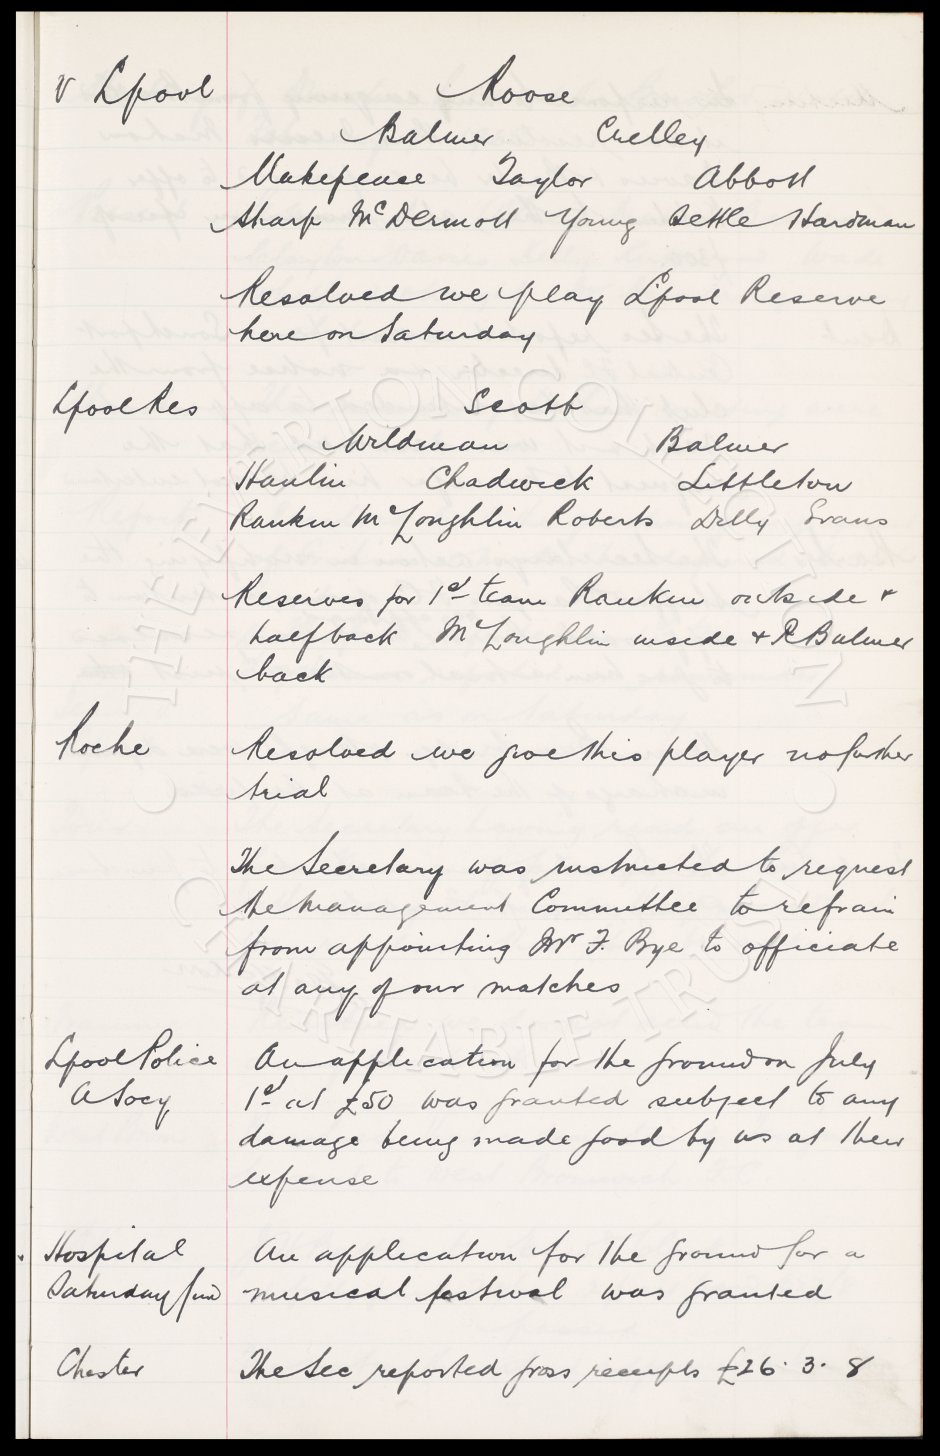 v Lpool Roose
Balmer Crelley
Makepeace Taylor Abbott
Sharp McDermott Young Settle Hardman
Resolved we play L'pool Reserve
here on Saturday
Lpool Res Scott
Wildman Balmer
Hanlin Chadwick Littleton
Rankin McLoughlin Roberts Dilly Evans
Reserves for 1st team Rankin outside +
halfback McLoughlin inside + R Balmer
back
Roche Resolved we give this player no further
trial
The Secretary was instructed to request
the Management Committee to refrain
from appointing Mr F. Bye to officiate
at any of our matches
Lpool Police An application for the ground on July
A Socy 1st at £50 was granted subject to any
damage being made good by us at their
expense
Hospital An application for the ground for a
Saturday fund musical festival was granted
Chester The Sec reported gross receipts £26. 3. 8
THE EVERTON COLLECTION
CHARITABLE TRUST